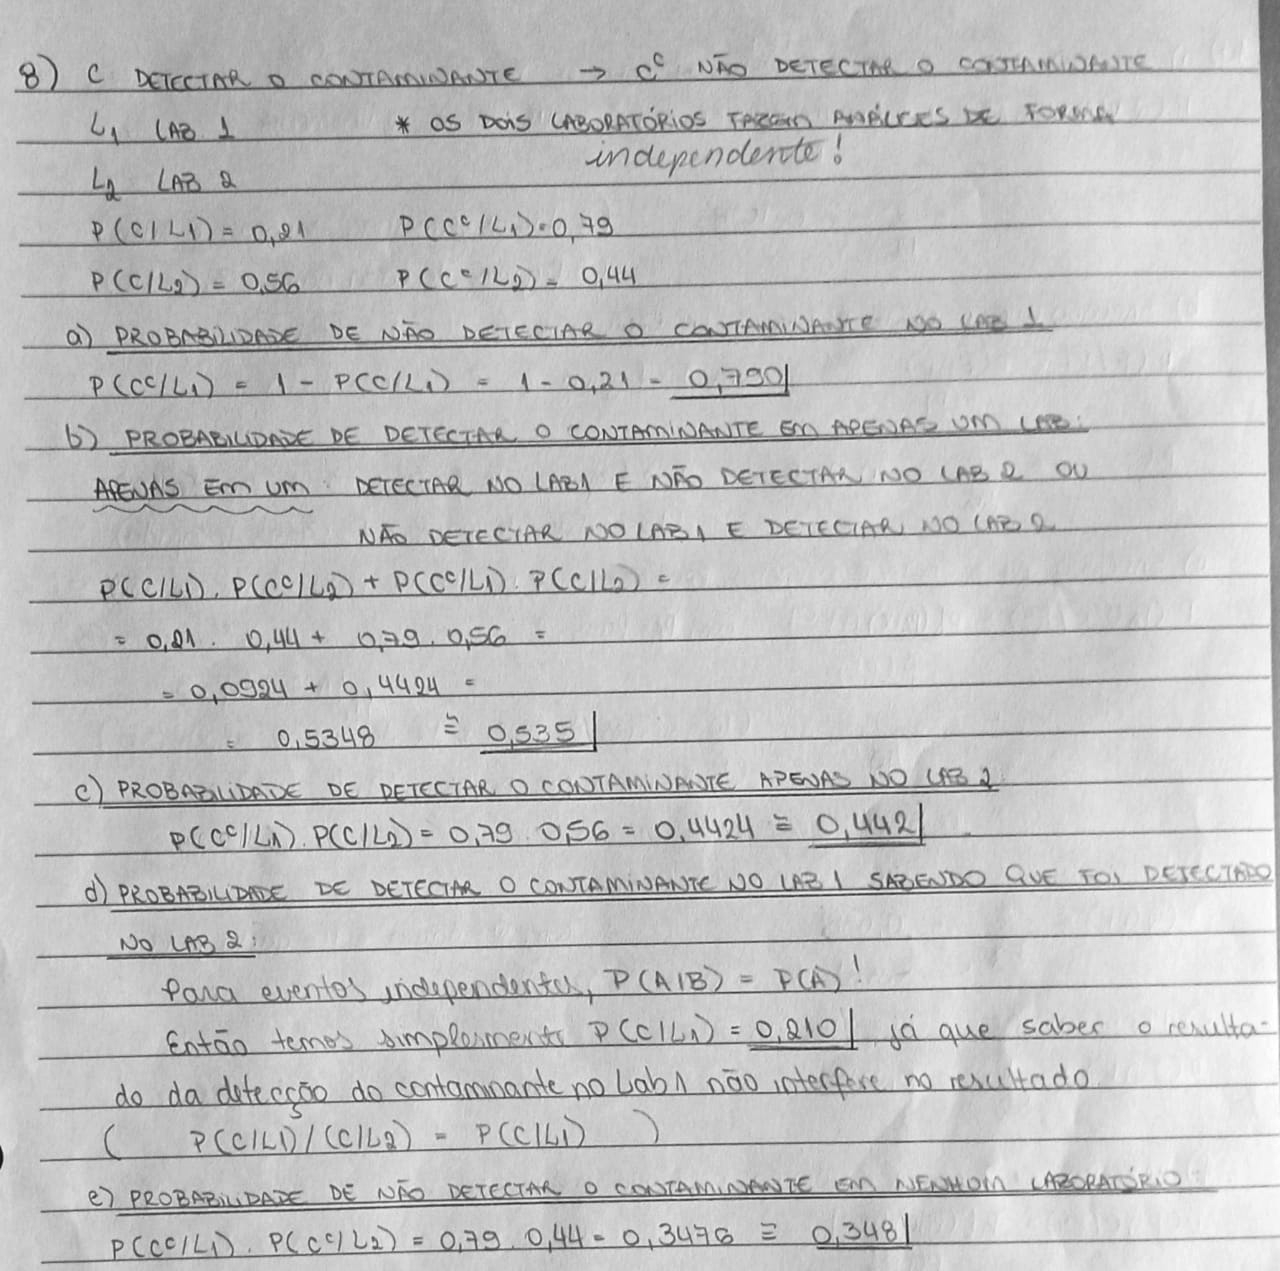 8) C DETECTAR O CONTAMINANTE → Cᶜ NÃO DETECTAR O CONTAMINANTE
L₁ LAB 1 * OS DOIS LABORATÓRIOS FAZEM ANÁLISES DE FORMA
independente!
L₂ LAB 2
P(C/L1) = 0,21 P(Cᶜ/L₁) = 0,79
P(C/L₂) = 0,56 P(Cᶜ/L₂) = 0,44
a) PROBABILIDADE DE NÃO DETECTAR O CONTAMINANTE NO LAB 1
P(Cᶜ/L₁) = 1 - P(C/L₁) = 1 - 0,21 = 0,790
b) PROBABILIDADE DE DETECTAR O CONTAMINANTE EM APENAS UM LAB:
APENAS EM UM: DETECTAR NO LAB1 E NÃO DETECTAR NO LAB 2 OU
NÃO DETECTAR NO LAB 1 E DETECTAR NO LAB 2
P(C/L1) . P(Cᶜ/L₂) + P(Cᶜ/L₁) . P(C/L₂) =
= 0,21 . 0,44 + 0,79 . 0,56 =
= 0,0924 + 0,4424 =
= 0,5348 ≅ 0,535
c) PROBABILIDADE DE DETECTAR O CONTAMINANTE APENAS NO LAB 2:
P(Cᶜ/L1) . P(C/L₂) = 0,79 . 0,56 = 0,4424 ≅ 0,442
d) PROBABILIDADE DE DETECTAR O CONTAMINANTE NO LAB 1 SABENDO QUE FOI DETECTADO
NO LAB 2:
Para eventos independentes, P(A/B) = P(A)!
Então temos simplesmente P(C/L₁) = 0,210 já que saber o resulta-
do da detecção do contaminante no Lab1 não interfere no resultado
( P(C/L1)/(C/L2) = P(C/L1) )
e) PROBABILIDADE DE NÃO DETECTAR O CONTAMINANTE EM NENHUM LABORATÓRIO:
P(Cᶜ/L₁) . P(Cᶜ/L₂) = 0,79 . 0,44 = 0,3476 ≅ 0,348